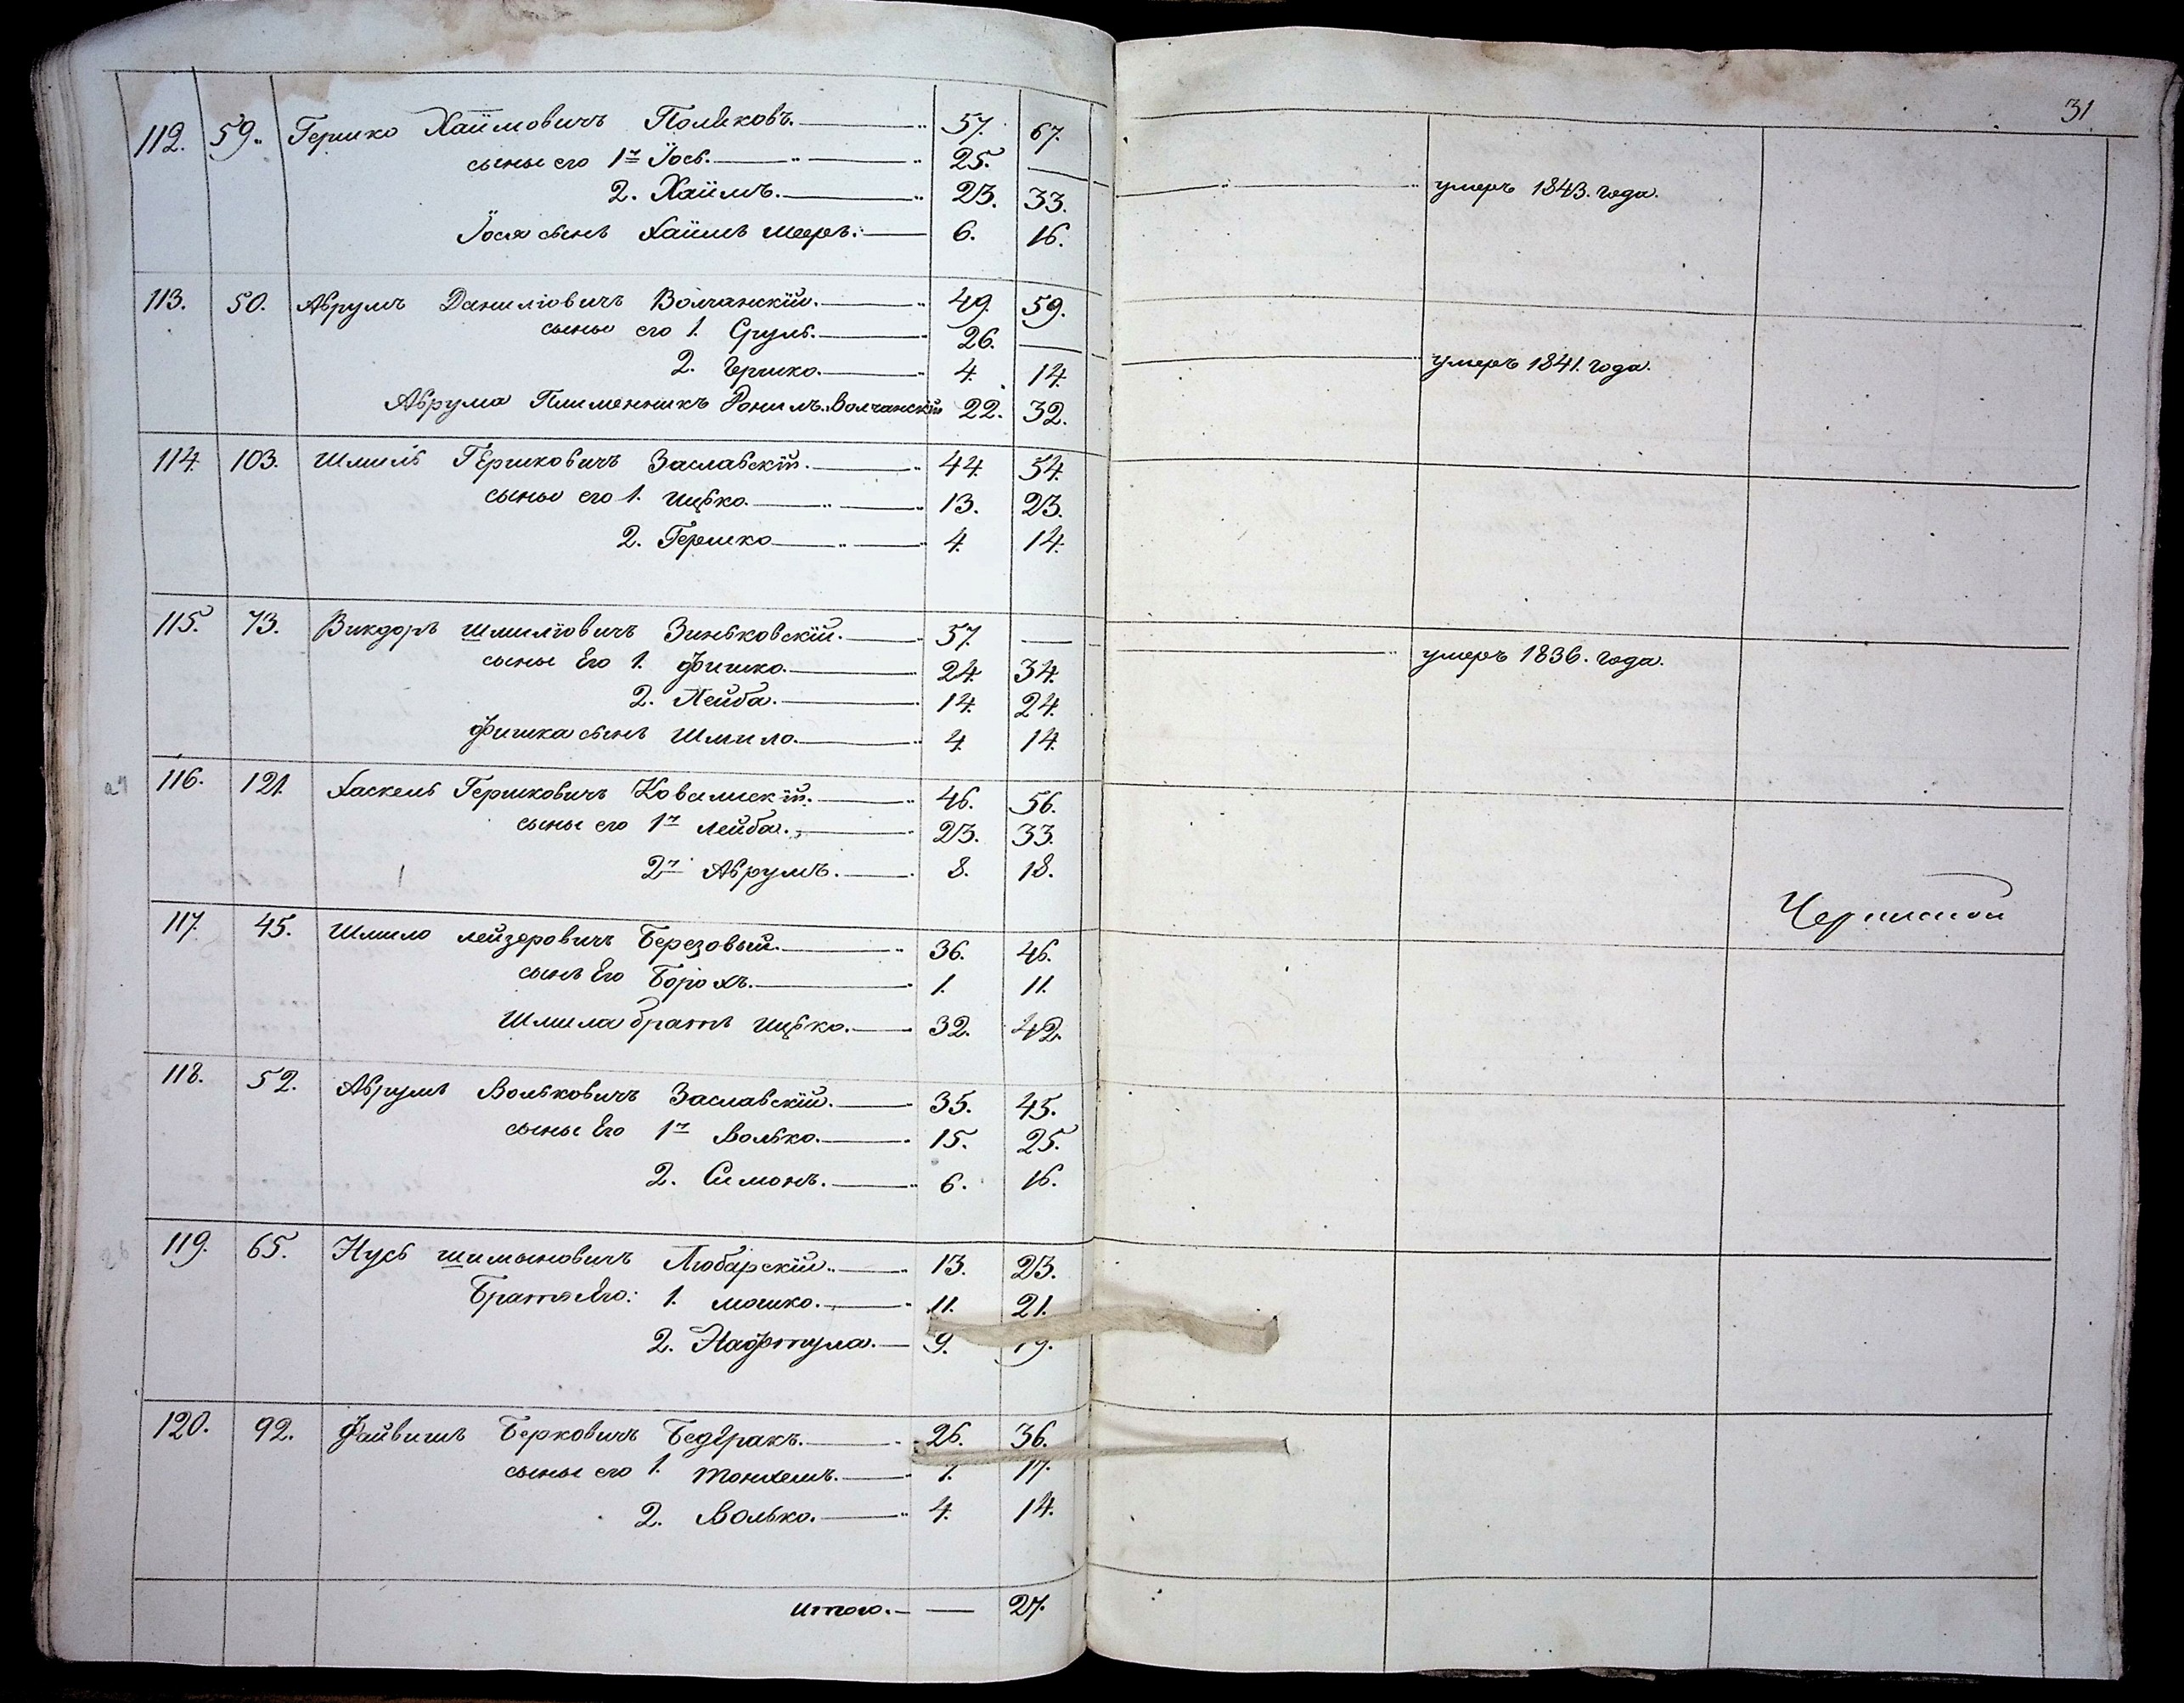 31
112. 59. Гершко Хаимовичъ Поляковъ. 57. 67.
сыны его 1й Іось. 25. — умеръ 1843. года.
2. Хаимъ. 23. 33.
Іося сынъ Хаимъ Мееръ. 6. 16.
113. 50. Абрумъ Даниліовичъ Волчанскій. 49. 59.
сыны его 1. Сруль. 26. — умеръ 1841. года.
2. Ершко. 4. 14.
Абрума Плименникъ Донилъ Волчанскій 22. 32.
114. 103. Шмиль Гершковичъ Заславскій. 44. 54.
сыны его 1. Ицько. 13. 23.
2. Гершко 4. 14.
115. 73. Викдоръ Шмиліовичъ Зиньковскій. 57. — умеръ 1836. года.
сыны Его 1. Фишко. 24. 34.
2. Лейба. 14. 24.
Фишка сынъ Шмило. 4. 14.
116. 121. Хаскель Гершковичъ 46. 56.
сыны его 1й Лейба. 23. 33.
2й Абрумъ. 8. 18.
117. 45. Шмило Лейзеровичъ Березовый. 36. 46.
сынъ Его Борохъ. 1. 11.
Шмила братъ Ицько. 32. 42.
118. 52. Абрумъ Вольковичъ Заславскій. 35. 45.
сыны Его 1й Волько. 15. 25.
2. Симонъ. 6. 16.
119. 65. Нусь Шимоновичъ Любарскій. 13. 23.
Братя Его: 1. Мошко. 11. 21.
2. Нафтула. 9. 19.
120. 92. Файвишъ Берковичъ 26. 36.
сыны его 1. 7. 17.
2. Волько. 4. 14.
Итого. — 27.